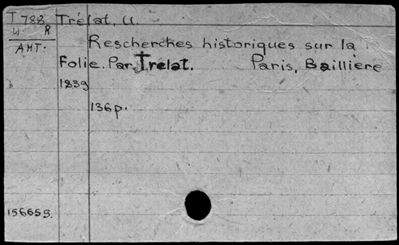 T 788 Trélat, U.
W R
AMT.
Rescherches historiques sur la
Folie. Par Trelat. Paris, Baillière
1839
136p.
156659.